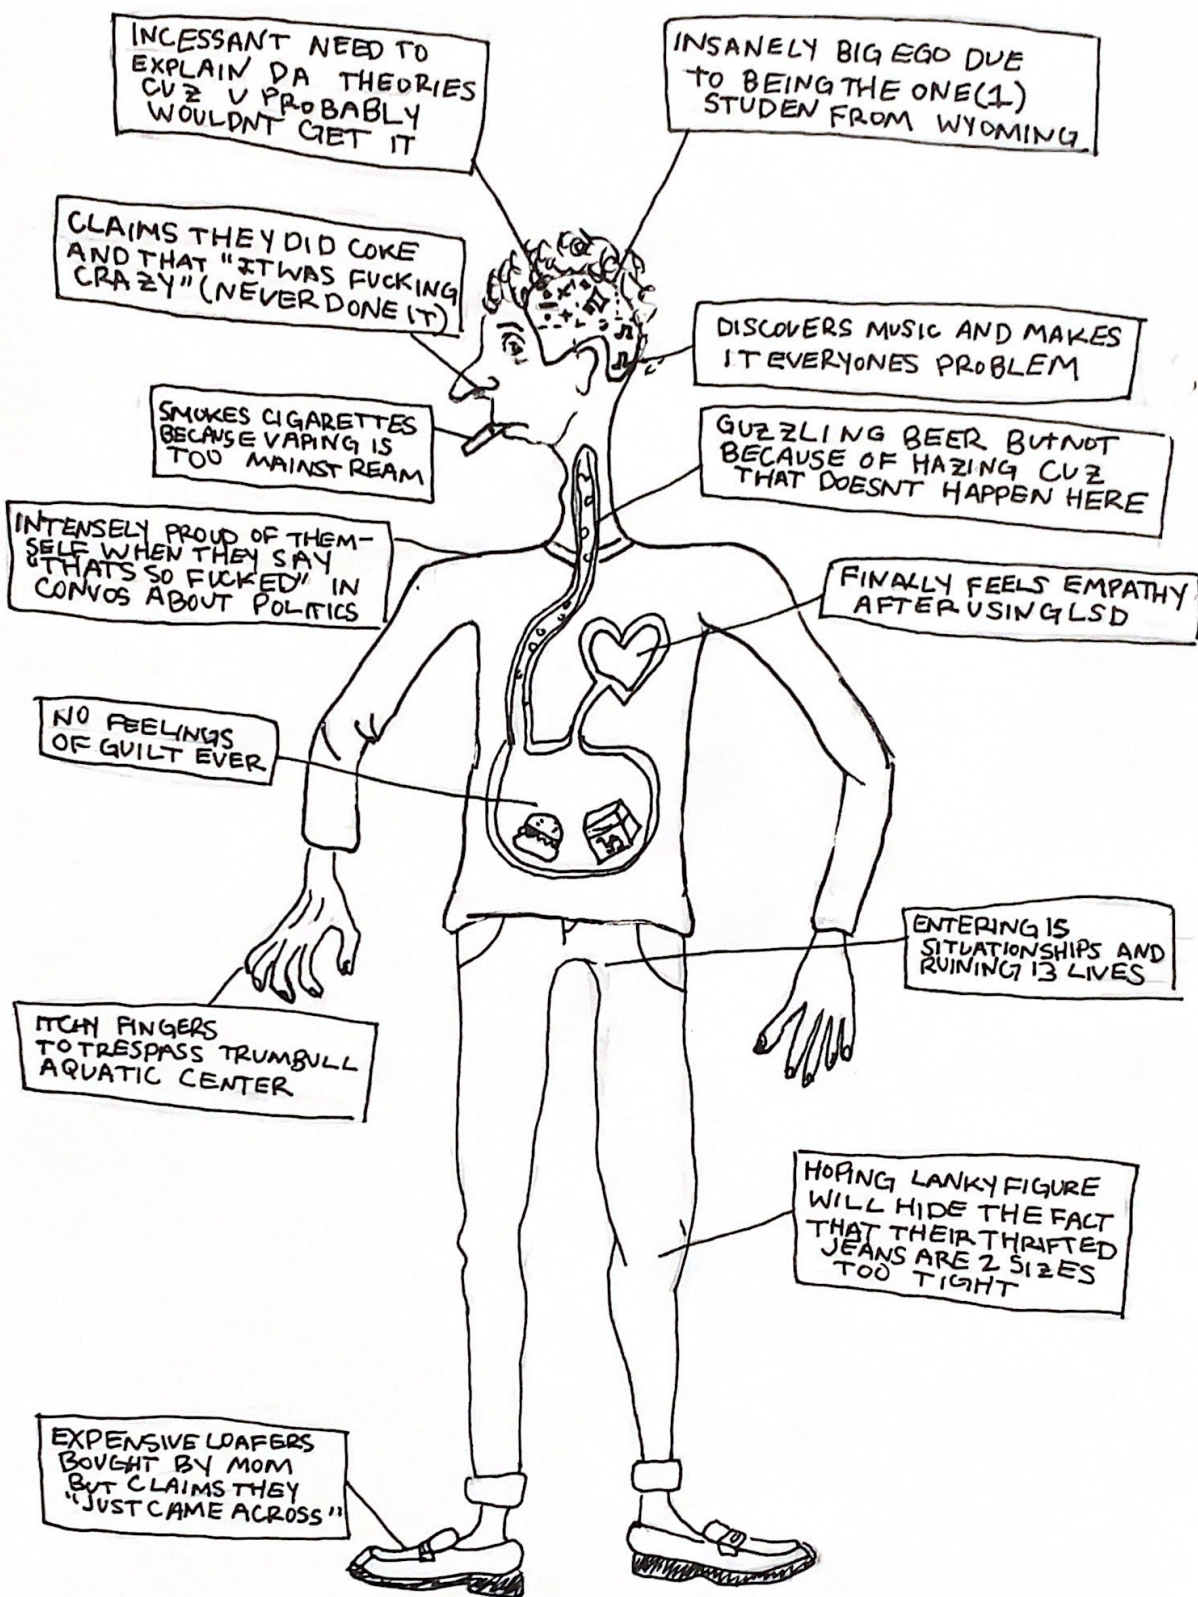 INCESSANT NEED TO
EXPLAIN DA THEORIES
CUZ U PROBABLY
WOULDNT GET IT
INSANELY BIG EGO DUE
TO BEING THE ONE(1)
STUDEN FROM WYOMING
CLAIMS THEY DID COKE
AND THAT "IT WAS FUCKING
CRAZY" (NEVER DONE IT)
DISCOVERS MUSIC AND MAKES
IT EVERYONES PROBLEM
SMOKES CIGARETTES
BECAUSE VAPING IS
TOO MAINSTREAM
GUZZLING BEER BUT NOT
BECAUSE OF HAZING CUZ
THAT DOESNT HAPPEN HERE
INTENSELY PROUD OF THEM-
SELF WHEN THEY SAY
"THATS SO FUCKED" IN
CONVOS ABOUT POLITICS
FINALLY FEELS EMPATHY
AFTER USING LSD
NO FEELINGS
OF GUILT EVER
ENTERING 15
SITUATIONSHIPS AND
RUINING 13 LIVES
ITCHY FINGERS
TO TRESPASS TRUMBULL
AQUATIC CENTER
HOPING LANKY FIGURE
WILL HIDE THE FACT
THAT THEIR THRIFTED
JEANS ARE 2 SIZES
TOO TIGHT
EXPENSIVE LOAFERS
BOUGHT BY MOM
BUT CLAIMS THEY
"JUST CAME ACROSS"